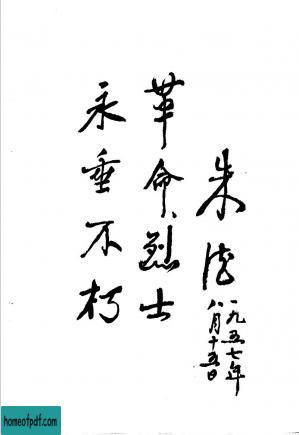 革命烈士
永垂不朽
朱德
一九五七年
八月十五日
homeofpdf.com